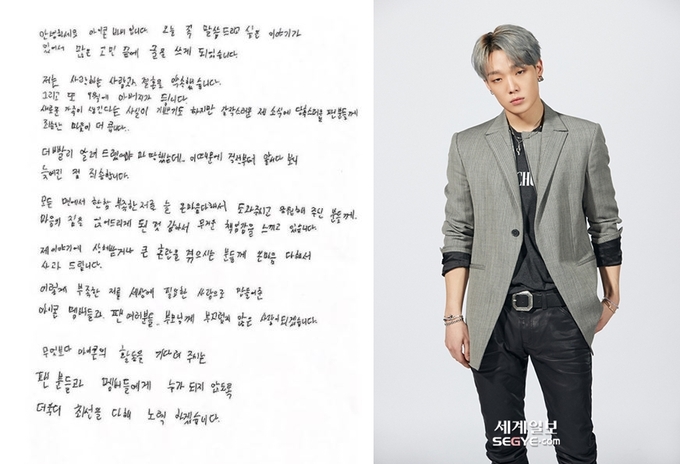 안녕하세요 아이콘 바비입니다. 오늘 꼭 말씀드리고 싶은 이야기가
있어서 많은 고민 끝에 글을 쓰게 되었습니다.
저는 사랑하는 사람과 결혼을 약속했습니다.
그리고 또 9월에 아버지가 됩니다.
새로운 가족이 생긴다는 사실이 기쁘기도 하지만 갑작스러운 제 소식에 당혹스러울 팬분들께
죄송한 마음이 더 큽니다.
더 빨리 알려 드렸어야 마땅했는데.. 이때문에 걱정부터 앞서다 보니
늦어진 점 죄송합니다.
모든 면에서 한참 부족한 저를 늘 온마음다해서 도와주시고 응원해 주신 분들께.
마음의 짐을 얹어드리게 된 것 같아서 무거운 책임감을 느끼고 있습니다.
제 이야기에 상처받거나 큰 혼란을 겪으시는 분들께 온마음 다해서
사과 드립니다.
이렇게 부족한 저를 세상에 필요한 사람으로 만들어준
아이콘 멤버들과 팬 여러분들.. 부모님께 부끄럽지 않은 사람이되겠습니다.
무엇보다 아이콘의 활동을 기다려 주시는
팬 분들과 멤버들에게 누가 되지 않도록
더욱더 최선을 다해 노력 하겠습니다.
세계일보
SEGYE.com